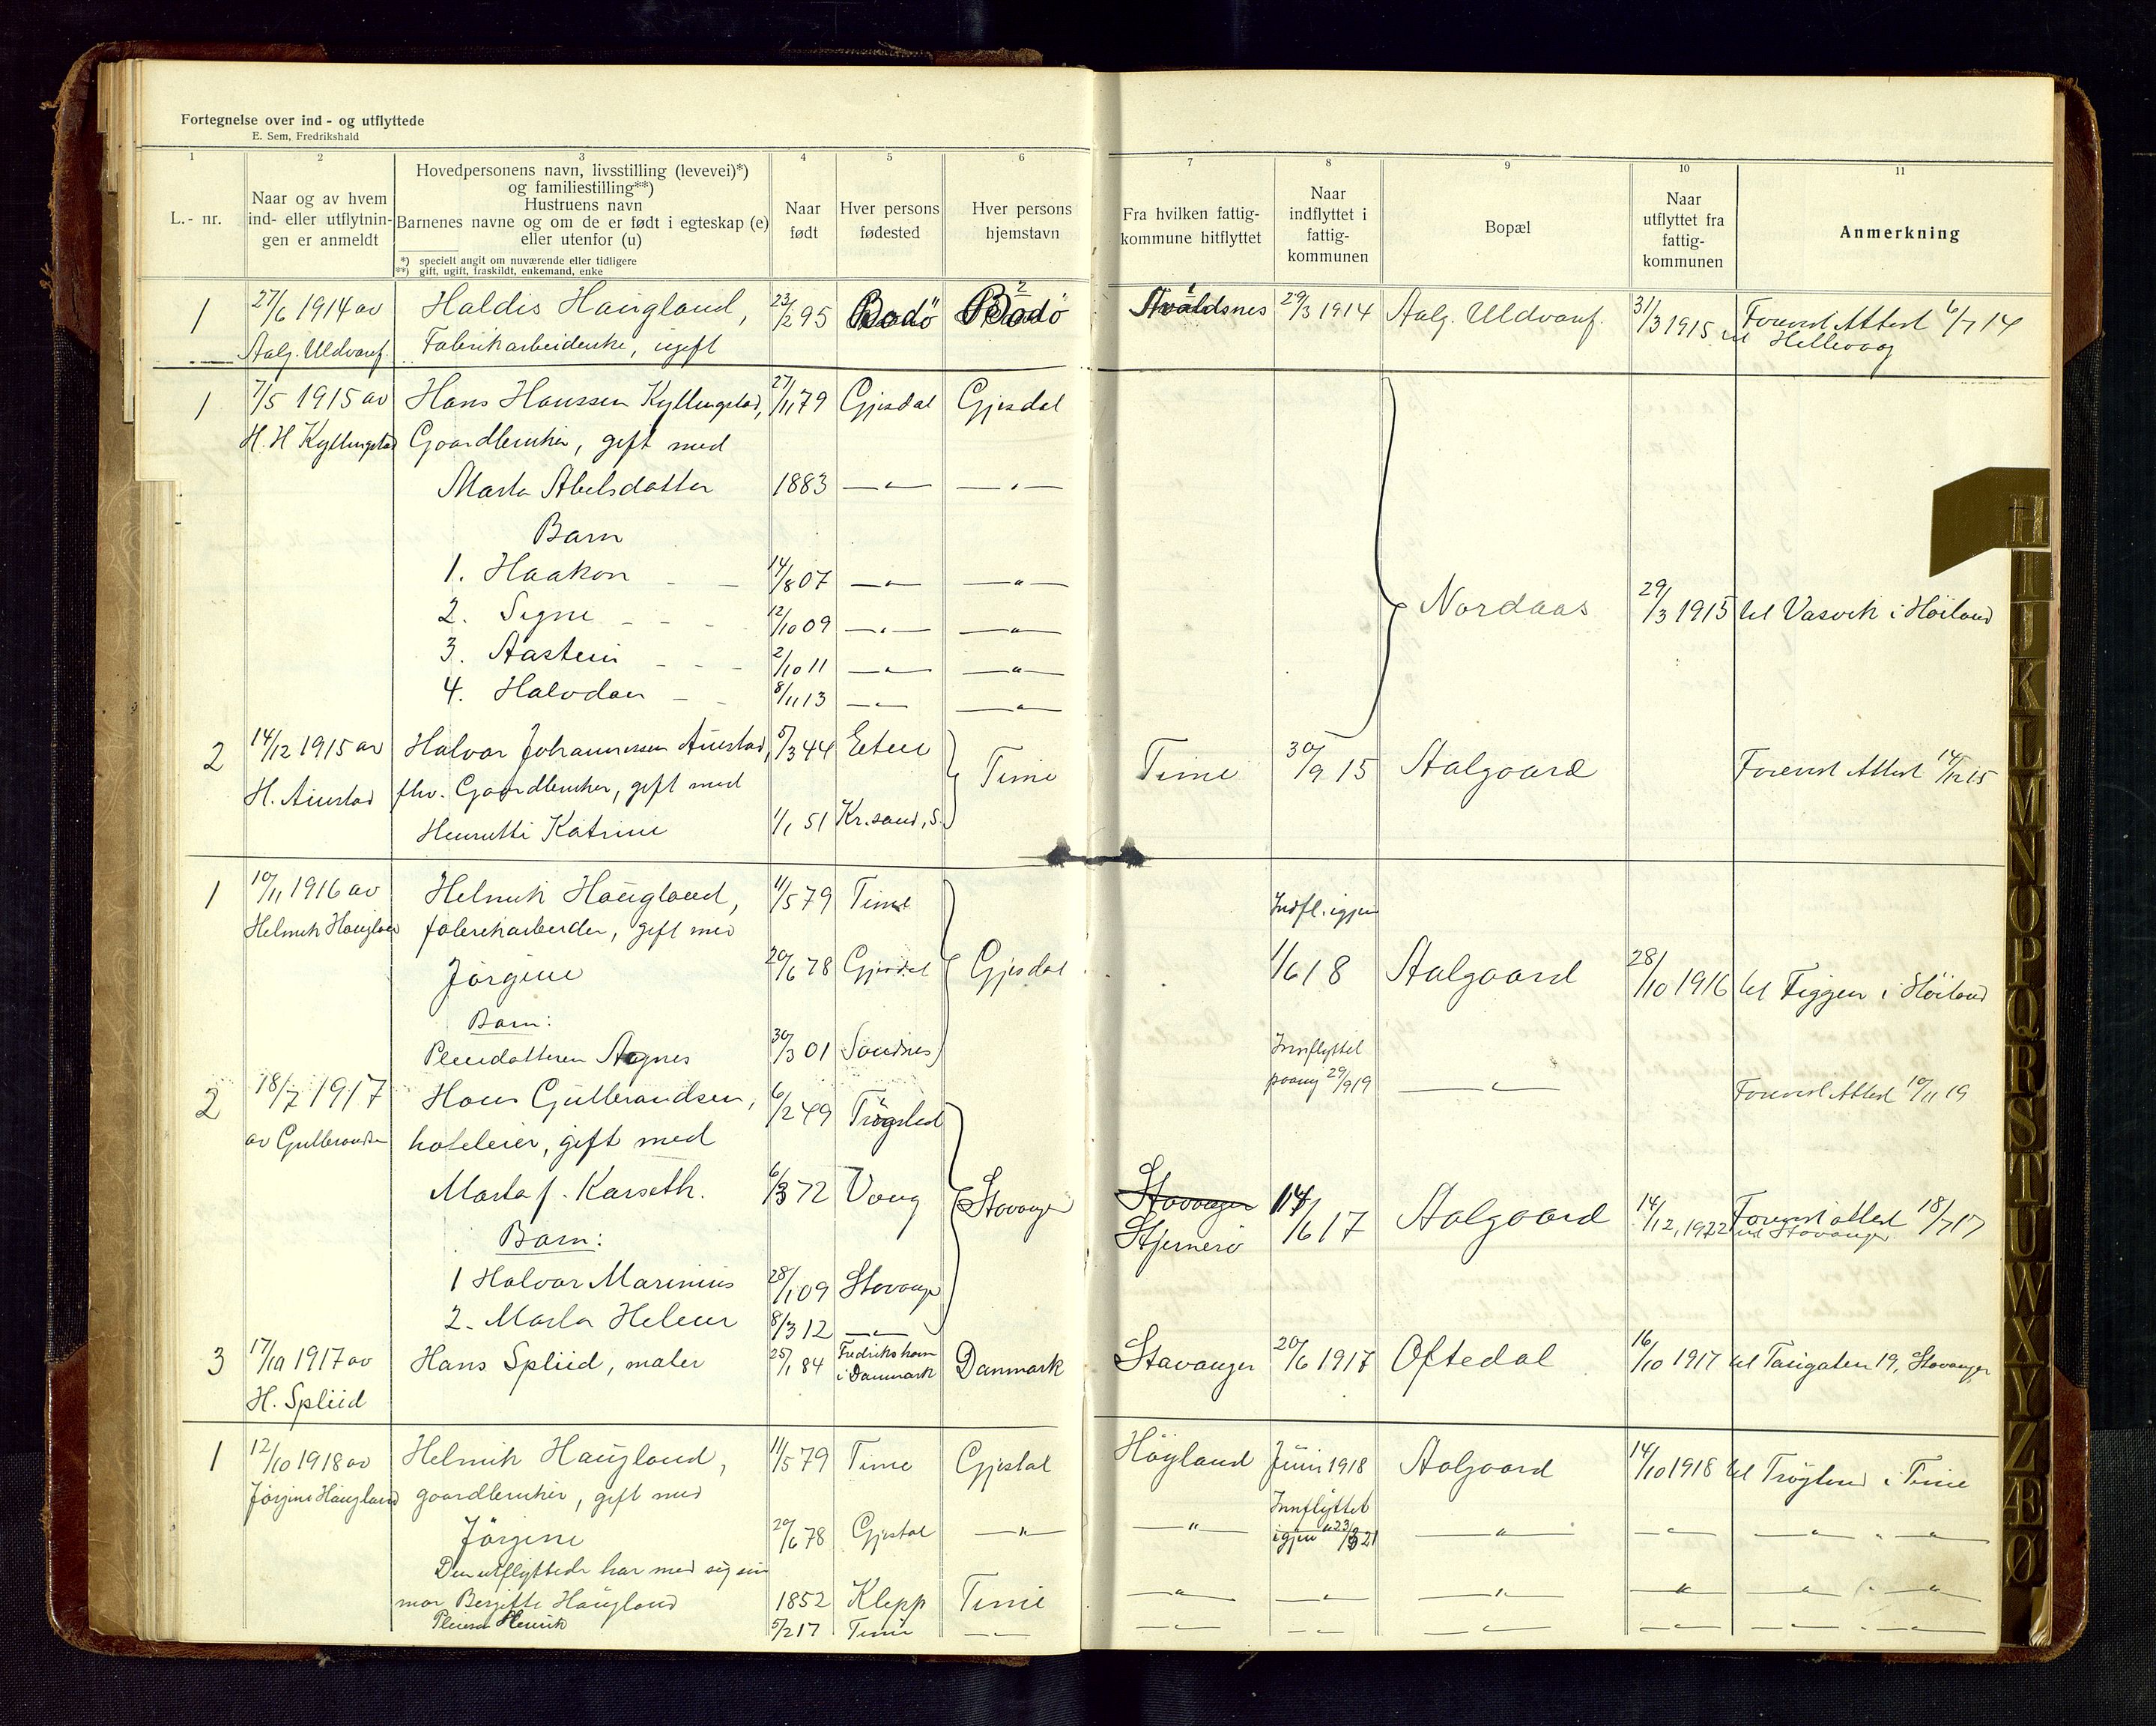 Fortegnelse over ind - og utflyttede
E. Sem, Fredrikshald
1 2 3 4 5 6 7 8 9 10 11
L.- nr.
Naar og av hvem
ind- eller utflytnin-
gen er anmeldt
Hovedpersonens navn, livsstilling (levevei)*)
og familiestilling**)
Hustruens navn
Barnenes navne og om de er født i egteskap (e)
eller utenfor (u)
*) specielt angit om nuværende eller tidligere
**) gift, ugift, fraskildt, enkemand, enke
Naar
født
Hver persons
fødested
Hver persons
hjemstavn
Fra hvilken fattig-
kommune hitflyttet
Naar
indflyttet i
fattig-
kommunen
Bopæl
Naar
utflyttet fra
fattig-
kommunen
Anmerkning
1 27/6 1914 av Haldis Haugland, 23/2 95 Bodö Bodö Avaldsnes 29/3 1914 Aalg. Uldvaref. 31/3 1915 Forevist Attest 6/7 14
Aalg. Uldvaref. Fabrikarbeiderske, ugift til Hellevaag
1 7/5 1915 av Hans Hanssen Kyllingstad, 27/11 79 Gjesdal Gjesdal
H. H Kyllingstad Gaardbruker, gift med
Marta Abelsdatter 1883 —"— —"—
Barn
1. Haakon 14/8 07 —"— —"—
2. Signe 12/10 09 —"— —"— Nordaas 29/3 1915 til Vasvik i Höiland
3. Aastein 2/10 11 —"— —"—
4. Halvdan 8/11 13 —"— —"—
2 14/12 1915 av Halvor Johannessen Auestad, 5/3 44 Time Time 30/9 15 Aalgaard Forevist Attest 14/12 15
H. Auestad fhv. Gaardbruker, gift med
Henriette Katrine 1/1 51 Kr.sand, S.
1 10/11 1916 av Helmik Haugland, 11/5 79 Time Indfl. igjen
Helmik Haugland fabrikarbeider, gift med
Jörgine 20/6 78 Gjesdal Gjesdal 1/6 18 Aalgaard 28/10 1916 til Figgen i Höiland
Barn:
Pleiedatteren Agnes 30/3 01 Sandnes Innflyttet
paany 29/9 19 —"— Forevist Attest 10/11 19
2 18/7 1917 Hans Gulbrandsen, 6/2 49 Trögstad
av Gulbrandsen hoteleier, gift med
Marta f. Karseth. 6/3 72 Vang Stavanger Stavanger 14/6 17 Aalgaard 14/12, 1922 Forevist attest 18/7 17
Stjernerö til Stavanger
Barn:
1 Halvor Marinius 28/1 09 Stavanger
2. Marta Helene 8/3 12 —"—
3 17/10 1917 av Hans Spliid, maler 25/1 84 Fredrikshavn
i Danmark Danmark Stavanger 20/6 1917 Oftedal 16/10 1917 til Tanigaten 19, Stavanger
H. Spliid
1 12/10 1918 av Helmik Haugland, 11/5 79 Time Gjestal Höyland Juni 1918 Aalgaard 14/10 1918 til Tröyland i Time
Jörgine Haugland gaardbruker, gift med
Jörgine 20/6 78 Gjestal —"— —"— Innflyttet
igjen 23/3 21 —"— —"— —"— " —"—
Den utflyttede har med sig sin
mor Bergitte Haugland 1852 Klepp Time —"— —"— —"— —"— —"— —"—
Pleiesøn Henrik 5/2 17 Time —"— —"— —"— —"— —"— —"— —"—
H
I
J
K
L
M
N
O
P
Q
R
S
T
U
W
X
Y
Z
Æ
Ø